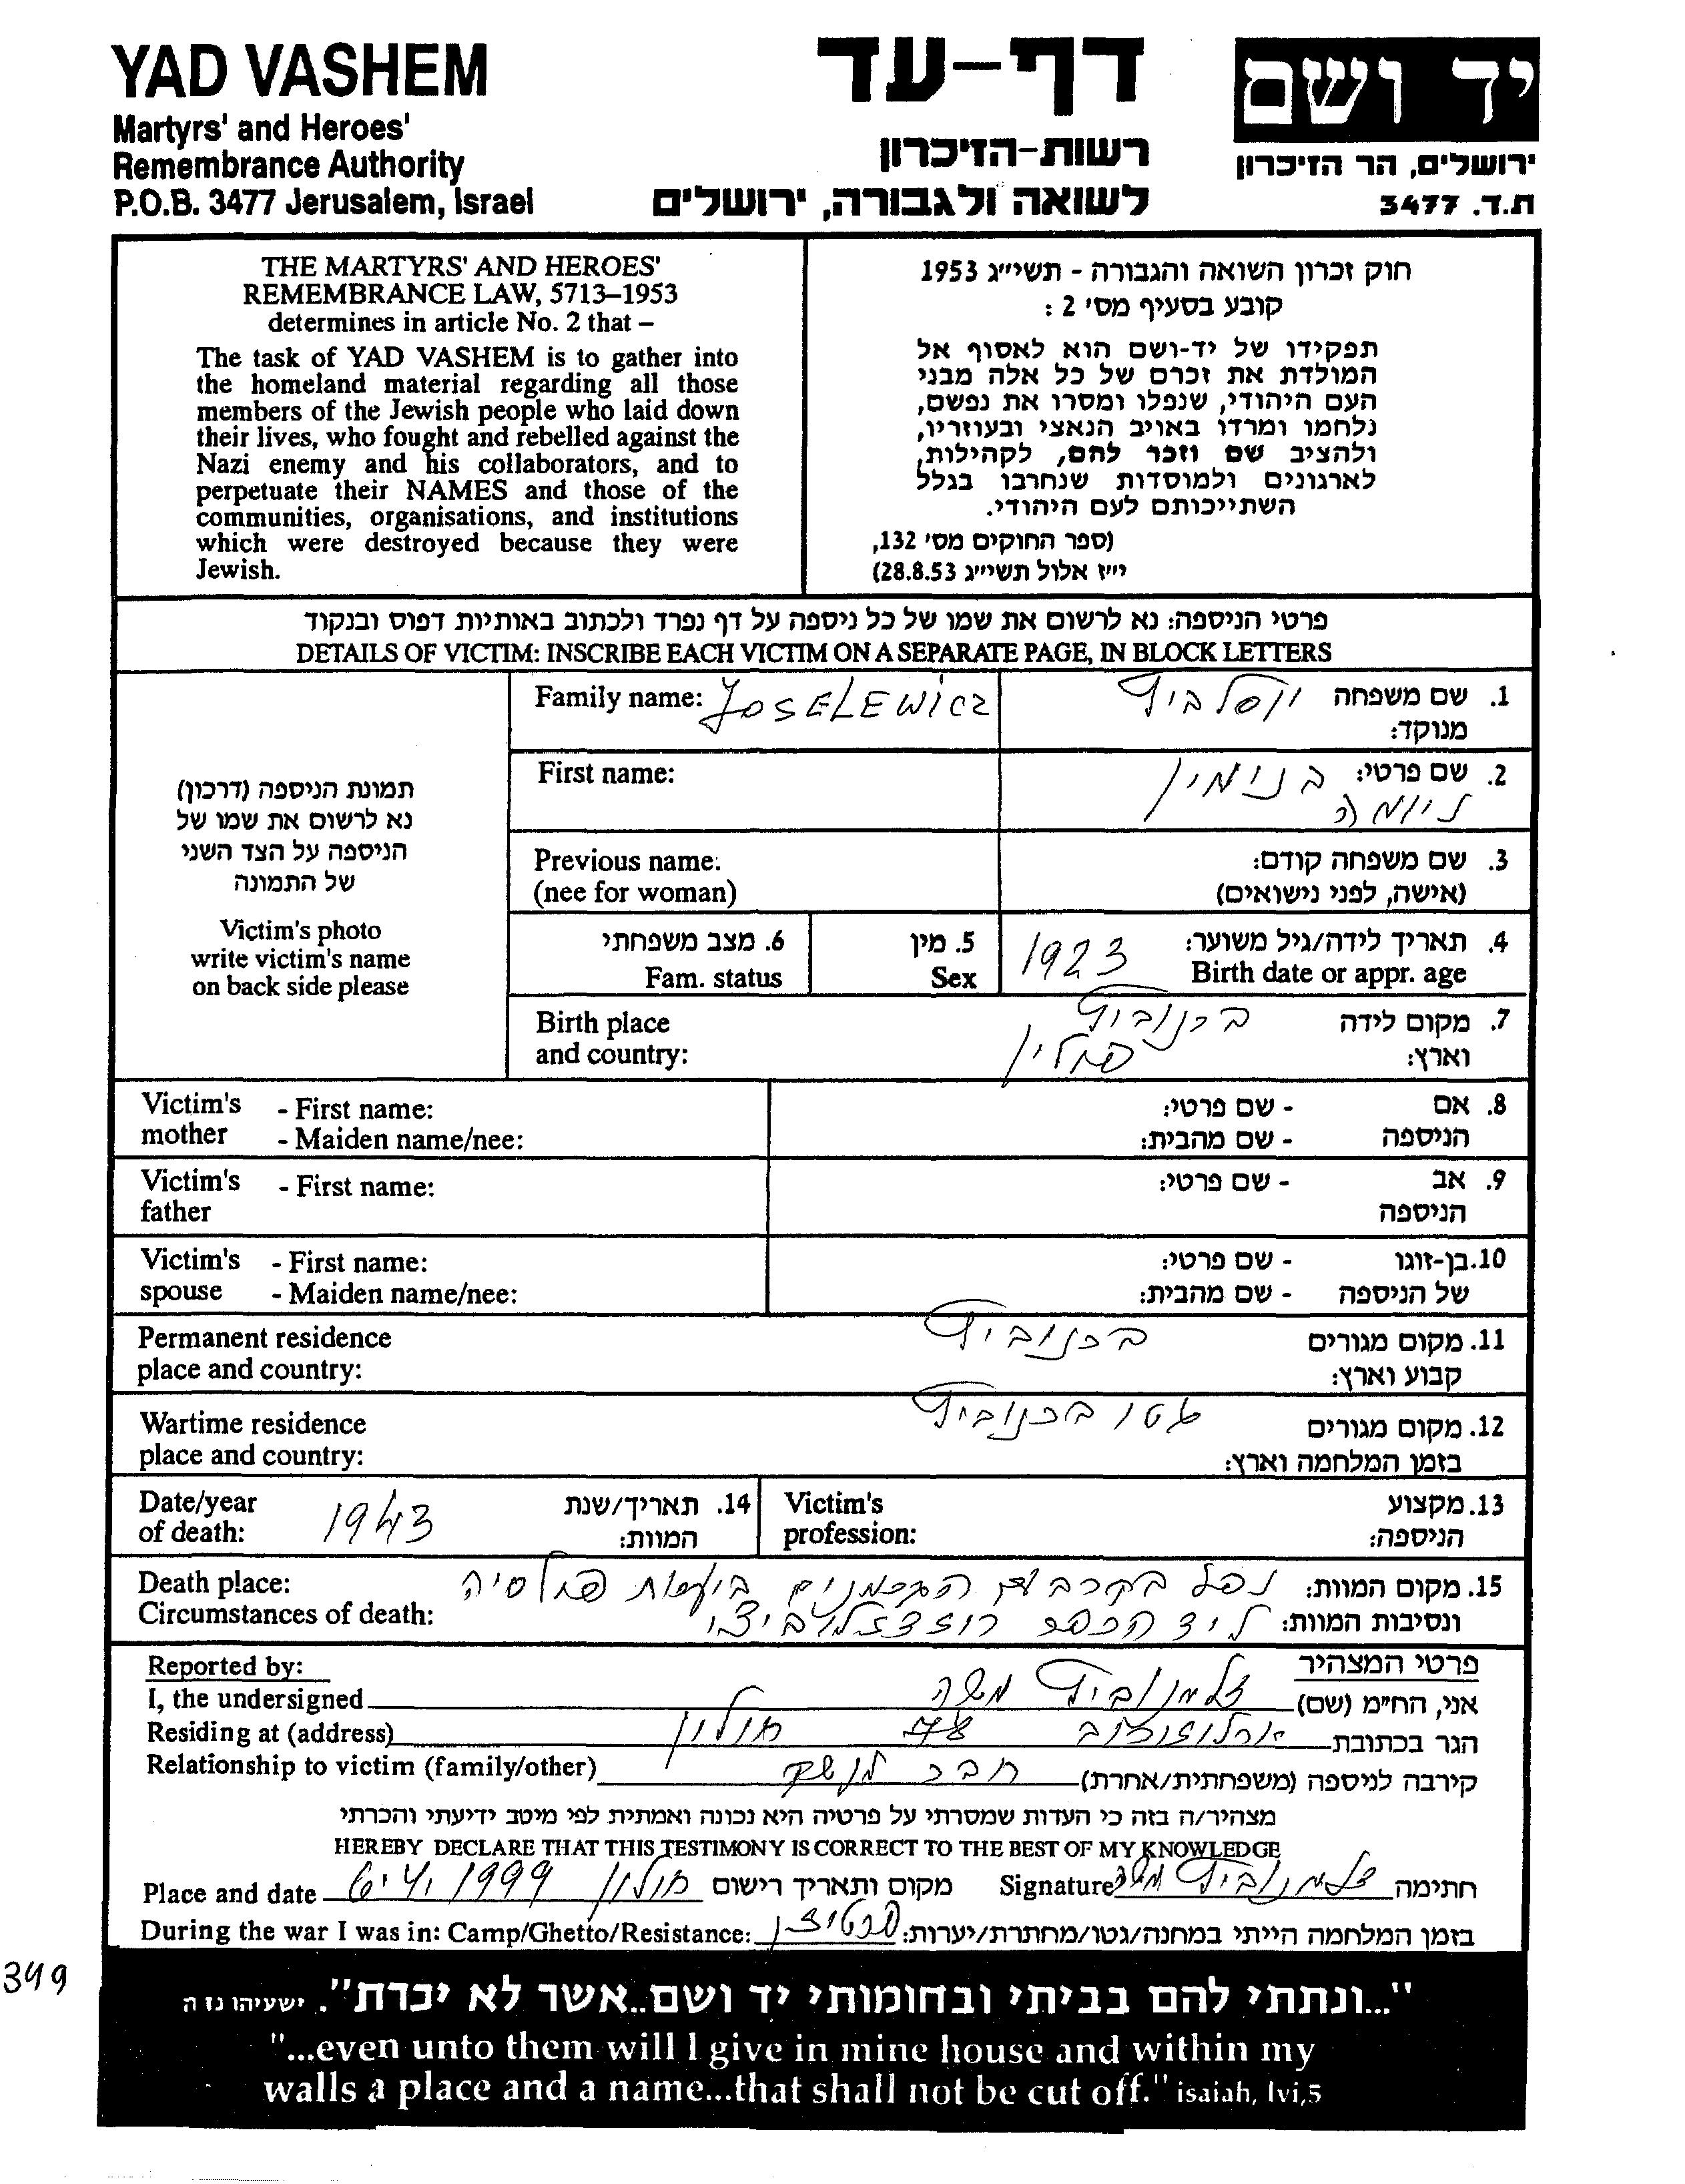 YAD VASHEM
Martyrs' and Heroes'
Remembrance Authority
P.O.B. 3477 Jerusalem, Israel
דף-עד
רשות-הזיכרון
לשואה ולגבורה, ירושלים
יד ושם
ירושלים, הר הזיכרון
ת.ד. 3477
THE MARTYRS' AND HEROES'
REMEMBRANCE LAW, 5713–1953
determines in article No. 2 that –
The task of YAD VASHEM is to gather into
the homeland material regarding all those
members of the Jewish people who laid down
their lives, who fought and rebelled against the
Nazi enemy and his collaborators, and to
perpetuate their NAMES and those of the
communities, organisations, and institutions
which were destroyed because they were
Jewish.
חוק זכרון השואה והגבורה - תשי״ג 1953
קובע בסעיף מס' 2 :
תפקידו של יד-ושם הוא לאסוף אל
המולדת את זכרם של כל אלה מבני
העם היהודי, שנפלו ומסרו את נפשם,
נלחמו ומרדו באויב הנאצי ובעוזריו,
ולהציב שם וזכר להם, לקהילות,
לארגונים ולמוסדות שנחרבו בגלל
השתייכותם לעם היהודי.
(ספר החוקים מס' 132,
י״ז אלול תשי״ג 28.8.53)
פרטי הניספה: נא לרשום את שמו של כל ניספה על דף נפרד ולכתוב באותיות דפוס ובנקוד
DETAILS OF VICTIM: INSCRIBE EACH VICTIM ON A SEPARATE PAGE, IN BLOCK LETTERS
תמונת הניספה (דרכון)
נא לרשום את שמו של
הניספה על הצד השני
של התמונה
Victim's photo
write victim's name
on back side please
Family name: JOSELEWicz
1. שם משפחה יוסלביץ
מנוקד:
First name:
2. שם פרטי: בנימין
ניומה
Previous name:
(nee for woman)
3. שם משפחה קודם:
(אישה, לפני נישואים)
4. תאריך לידה/גיל משוער: 1923
Birth date or appr. age
5. מין
Sex
6. מצב משפחתי
Fam. status
Birth place
and country:
7. מקום לידה ברנוביץ
וארץ: פולין
Victim's mother - First name:
- Maiden name/nee:
8. אם הניספה - שם פרטי:
- שם מהבית:
Victim's father - First name:
9. אב הניספה - שם פרטי:
Victim's spouse - First name:
- Maiden name/nee:
10. בן-זוגו של הניספה - שם פרטי:
- שם מהבית:
Permanent residence
place and country:
11. מקום מגורים ברנוביץ
קבוע וארץ:
Wartime residence
place and country:
12. מקום מגורים גטו ברנוביץ
בזמן המלחמה וארץ:
13. מקצוע
הניספה:
Victim's
profession:
14. תאריך/שנת
המוות:
Date/year
of death: 1943
Death place:
Circumstances of death:
15. מקום המוות: נפל בקרב עם הגרמנים ביערות פולסיה
ונסיבות המוות: ליד הכפר
Reported by:
פרטי המצהיר
I, the undersigned
אני, הח״מ (שם) זלמנוביץ משה
Residing at (address)
הגר בכתובת ארלוזורוב 78 חולון
Relationship to victim (family/other)
קירבה לניספה (משפחתית/אחרת) חבר לנשק
מצהיר/ה בזה כי העדות שמסרתי על פרטיה היא נכונה ואמתית לפי מיטב ידיעתי והכרתי
HEREBY DECLARE THAT THIS TESTIMONY IS CORRECT TO THE BEST OF MY KNOWLEDGE
Place and date 6.4.1999 חולון מקום ותאריך רישום
Signature זלמנוביץ משה חתימה
During the war I was in: Camp/Ghetto/Resistance:
בזמן המלחמה הייתי במחנה/גטו/מחתרת/יערות: פרטיזן
349
"...ונתתי להם בביתי ובחומותי יד ושם..אשר לא יכרת". ישעיהו נו ה
"...even unto them will I give in mine house and within my
walls a place and a name...that shall not be cut off." isaiah, lvi,5